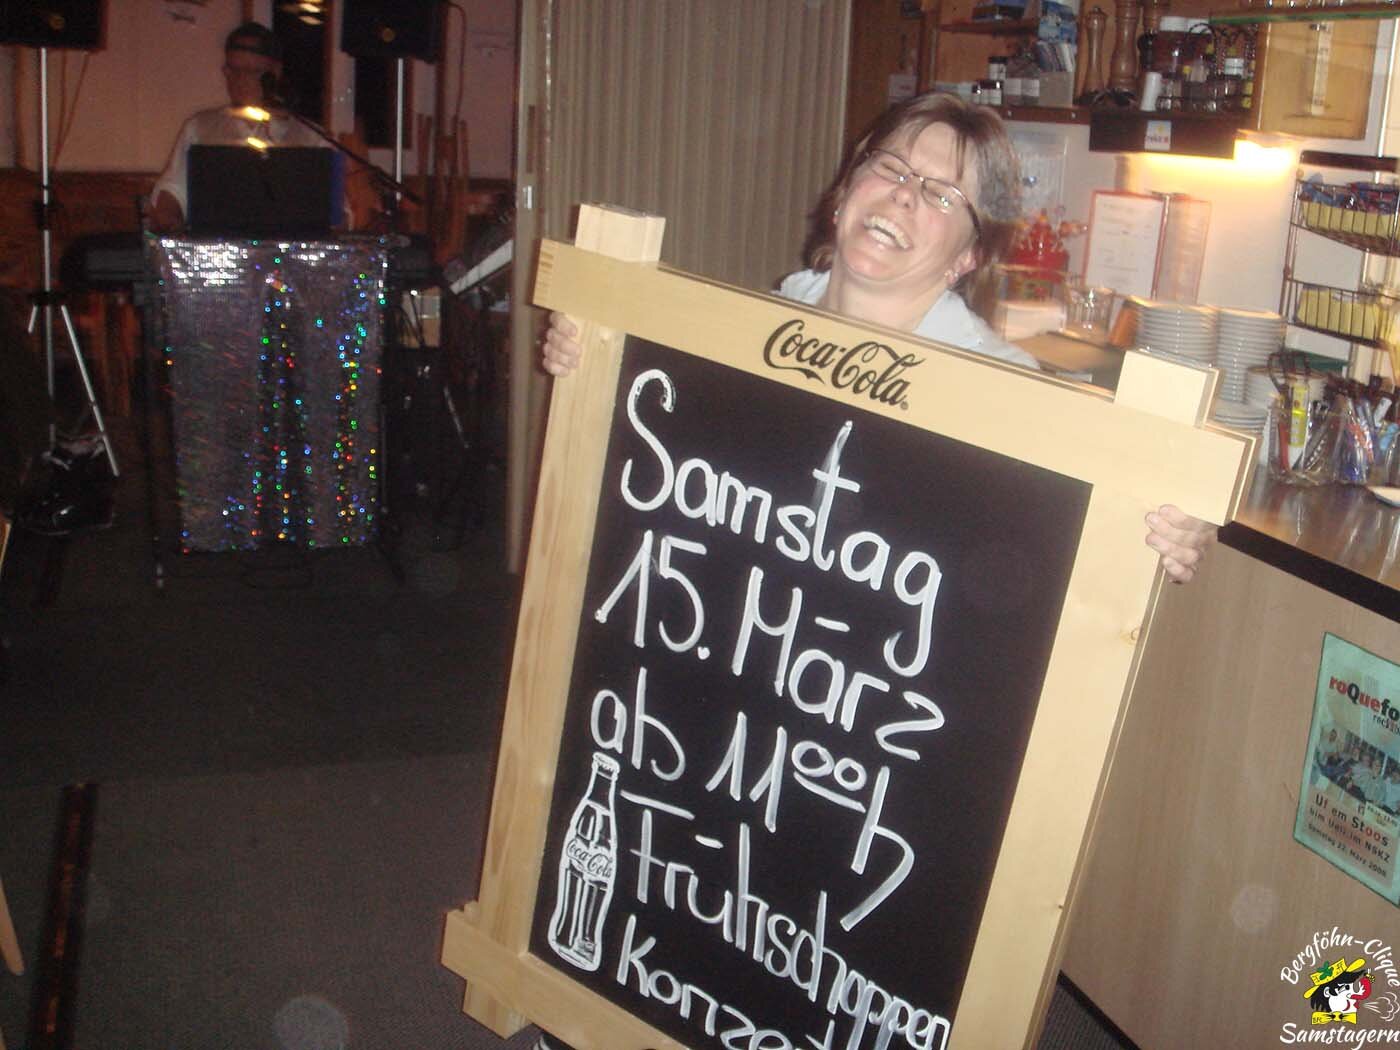 Coca-Cola
Samstag
15. März
ab 11⁰⁰h
Frühschoppen
Konzert
Coca-Cola
roQuefo
Uf em Stoos
bim Ueli im NSKZ
Samstag 22. März 2008
Bergföhn-Clique
Samstagern